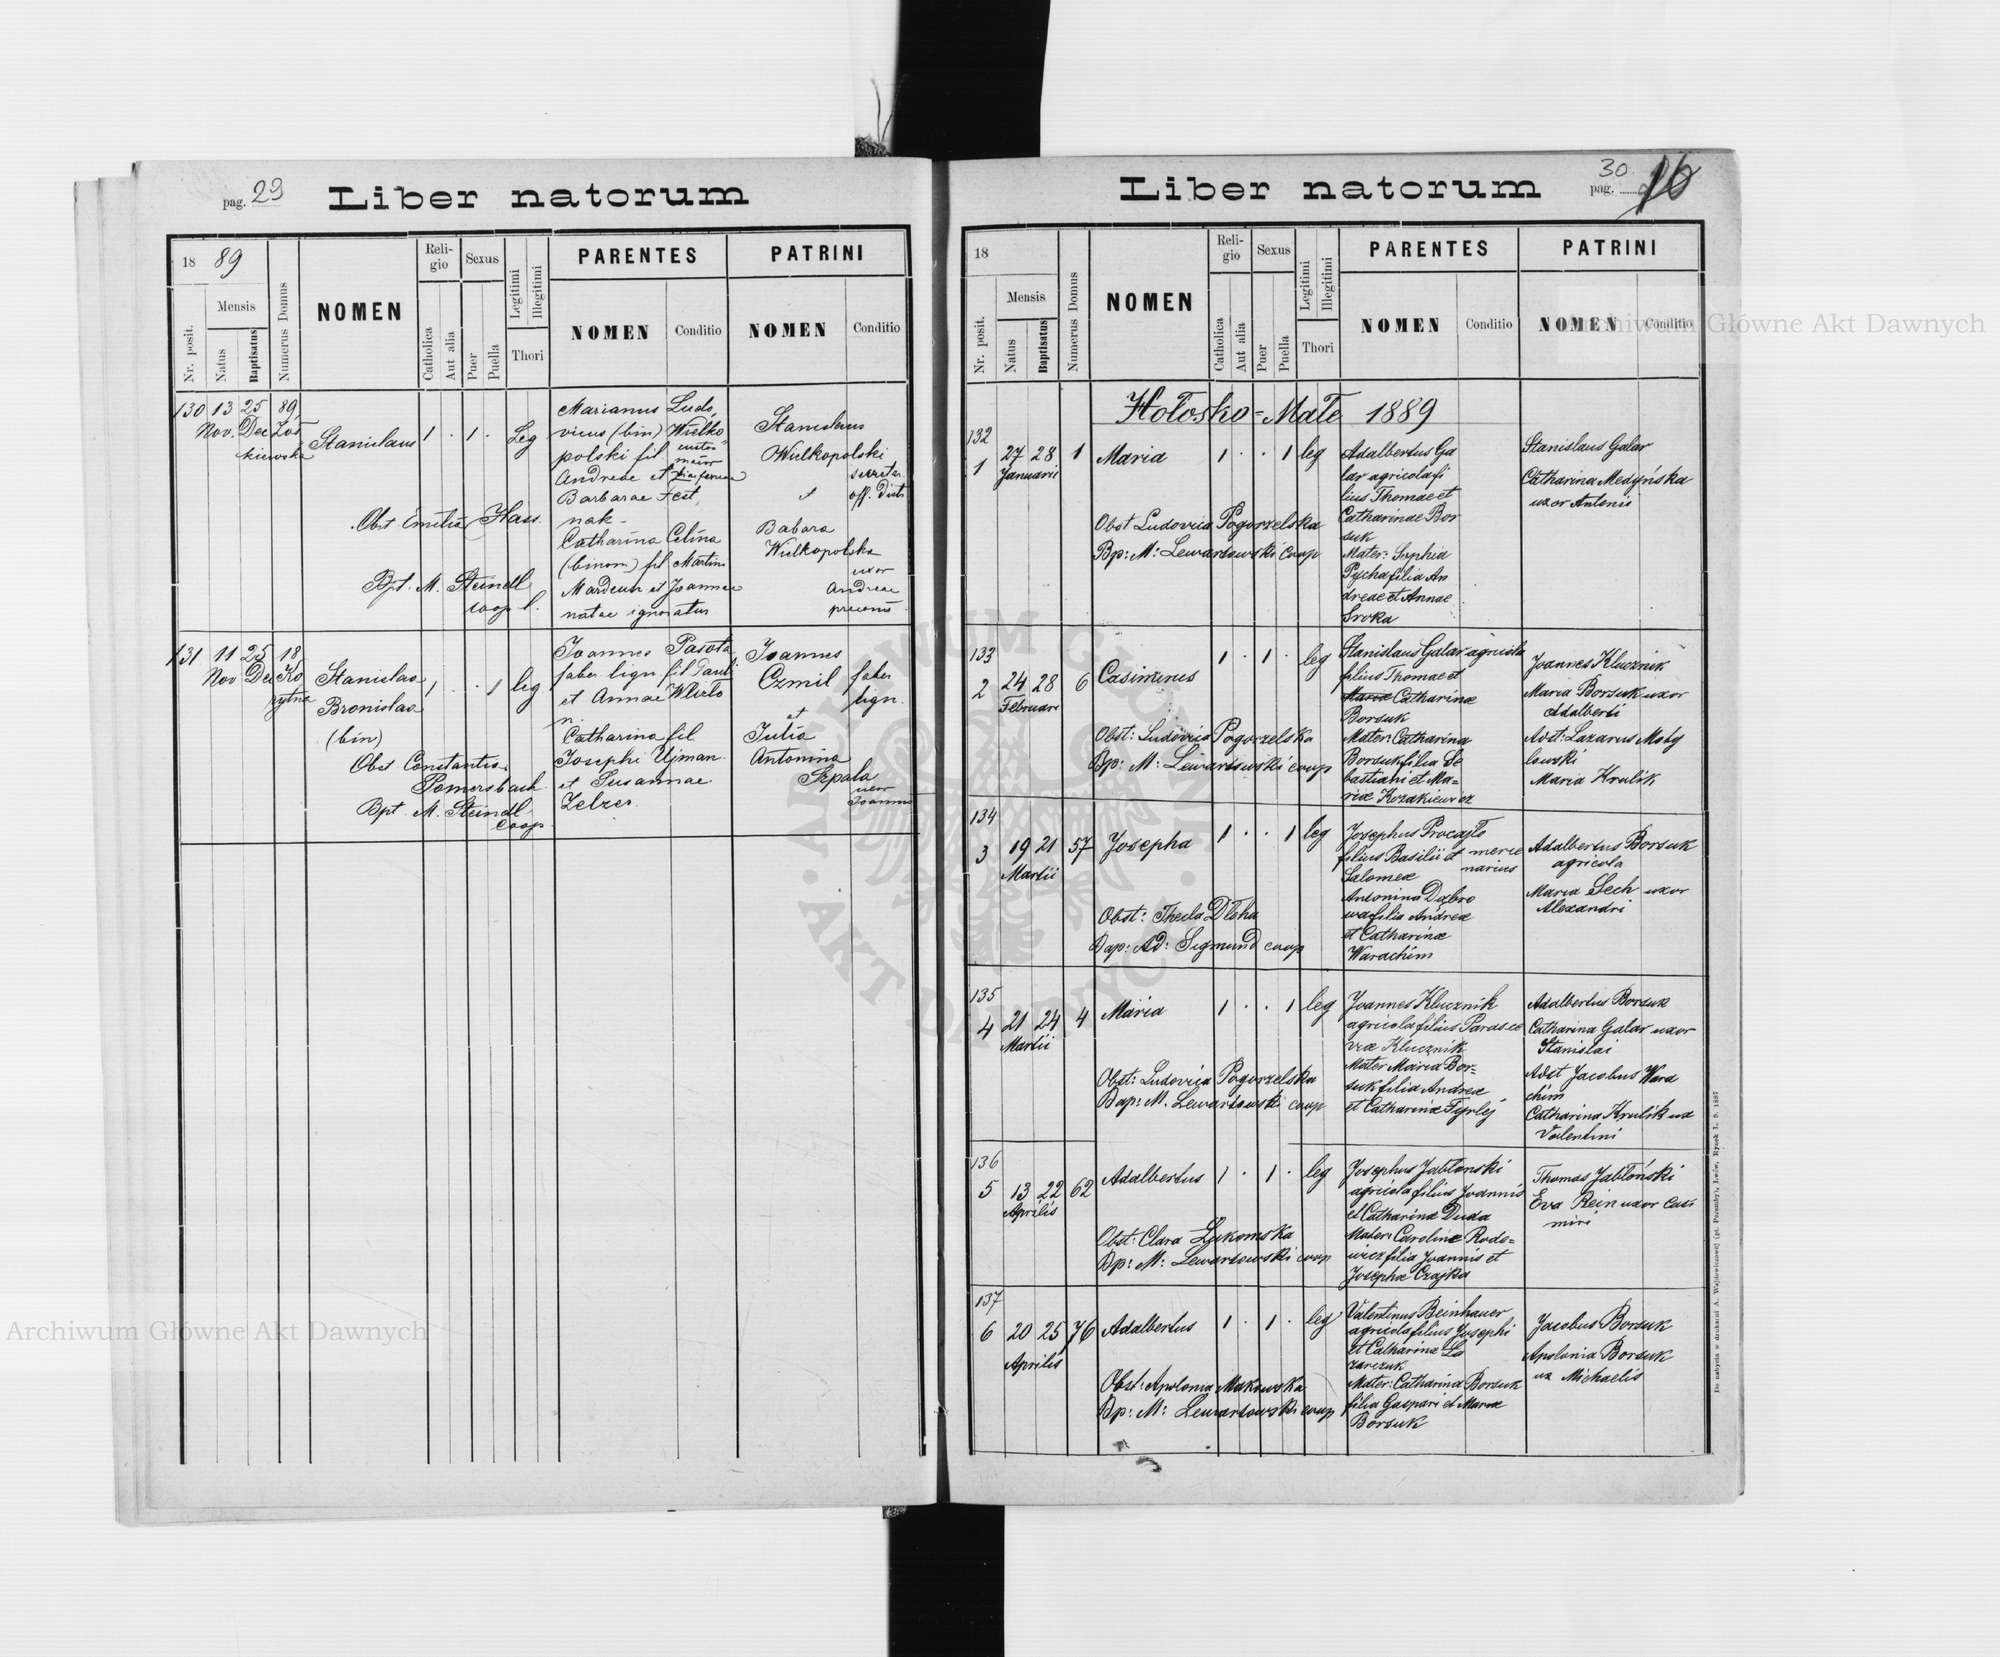 pag. 29
Liber natorum
18 89
Nr. posit.
Mensis
Natus
Baptisatus
Numerus Domus
NOMEN
Reli-
gio
Catholica
Aut alia
Sexus
Puer
Puella
Legitimi
Illegitimi
Thori
PARENTES
NOMEN
Conditio
PATRINI
NOMEN
Conditio
130 13 25 89
Nov. Dec Żół
kiewska
Stanislaus
1 . 1 . Leg
Marianus Ludo
vicus (bin) Wielko
polski fil
Andreae et
Barbarae
nak -
Catharina Celina
(binom) fil Martini
et Joannae
natae ignoratur
Stanislaus
Wielkopolski
et
Babara
Wielkopolska
uxor
Andreae
Obst Emilia Hass
Bpt. M. Steindl
coop l.
131 11 25 18
Nov Dec Ko
rytna
Stanislaa
Bronislaa
(bin)
1 . . 1 leg
Joannes Pasota
faber lign fil Pauli
et Annae
Catharina fil
Josephi Ujman
et Susannae
Zelzer
Joannes
Czmil faber
lign.
et
Julia
Antonina
Szpala
uxor
Joannis
Obst Constantia
Pomersbach
Bpt M. Steindl
Coop
Liber natorum
30
pag. 16
18
Nr. posit.
Mensis
Natus
Baptisatus
Numerus Domus
NOMEN
Reli-
gio
Catholica
Aut alia
Sexus
Puer
Puella
Legitimi
Illegitimi
Thori
PARENTES
NOMEN
Conditio
PATRINI
NOMEN
Conditio
Hołosko = Małe 1889
132
1 27 28 1
Januarii
Maria
1 . . 1 leg
Adalbertus Ga
lar agricola fi
lius Thomae et
Catharinae Bor
suk
Mater: Sophia
Pycha filia An
dreae et Annae
Sroka
Stanislaus Galar
Catharina Medyńska
uxor Antonii
Obst Ludovica Pogorzelska
Bp: M: Lewartowski coop
133
2 24 28 6
Februari
Casimirus
1 . 1 . leg
Stanislaus Galar agricola
filius Thomae et
Mariae Catharinae
Borsuk
Mater: Catharina
Borsuk filia Se
bastiani et Ma=
riae Kozakiewicz
Joannes Klucznik
Maria Borsuk uxor
Adalberti
Adst: Lazarus Moty
lowski
Maria Krulik
Obst: Ludovica Pogorzelska
Bp: M: Lewartowski coop
134
3 19 21 57
Martii
Josepha
1 . . 1 leg
Josephus Procajło
filius Basilii et merce
narius
Salomeae
Antonina Dąbro
wa filia Andreae
et Catharinae
Warachim
Adalbertus Borsuk
agricola
Maria Lech uxor
Alexandri
Obst: Thecla Dłoha
Bap: Ad: Sigmund coop
135
4 21 24 4
Martii
Maria
1 . . 1 leg
Joannes Klucznik
agricola filius Parasce
viae Klucznik
Mater Maria Bor=
suk filia Andreae
et Catharinae Tyrlej
Adalbertus Borsuk
Catharina Galar uxor
Stanislai
Adst Jacobus Wara
chim
Catharina Krulik ux
Valentini
Obst: Ludovica Pogorzelska
Bap: M. Lewartowski coop
136
5 13 22 62
Aprilis
Adalbertus
1 . 1 . leg
Josephus Jabłonski
agricola filius Joannis
et Catharinae Duda
Mater: Carolina Rodo=
wicz filia Joannis et
Josephae Czajka
Thomas Jabłoński
Eva Rein uxor Casi
miri
Obst: Clara Lukomska
Bp: M: Lewartowski coop
137
6 20 25 76
Aprilis
Adalbertus
1 . 1 . leg
Valentinus Beinhauer
agricola filius Josephi
et Catharinae La
zarczuk
Mater: Catharina Borsuk
filia Gaspari et Mariae
Borsuk
Jacobus Borsuk
Apolonia Borsuk
ux Michaelis
Obst: Apolonia Makowska
Bp: M: Lewartowski coop
Do nabycia w drukarni A. Wajdowiczowej (pt. Poremby), Lwów, Rynek L. 9. 1887
Archiwum Główne Akt Dawnych
Archiwum Główne Akt Dawnych
ARCHIWUM GŁÓWNE · AKT DAWNYCH ·